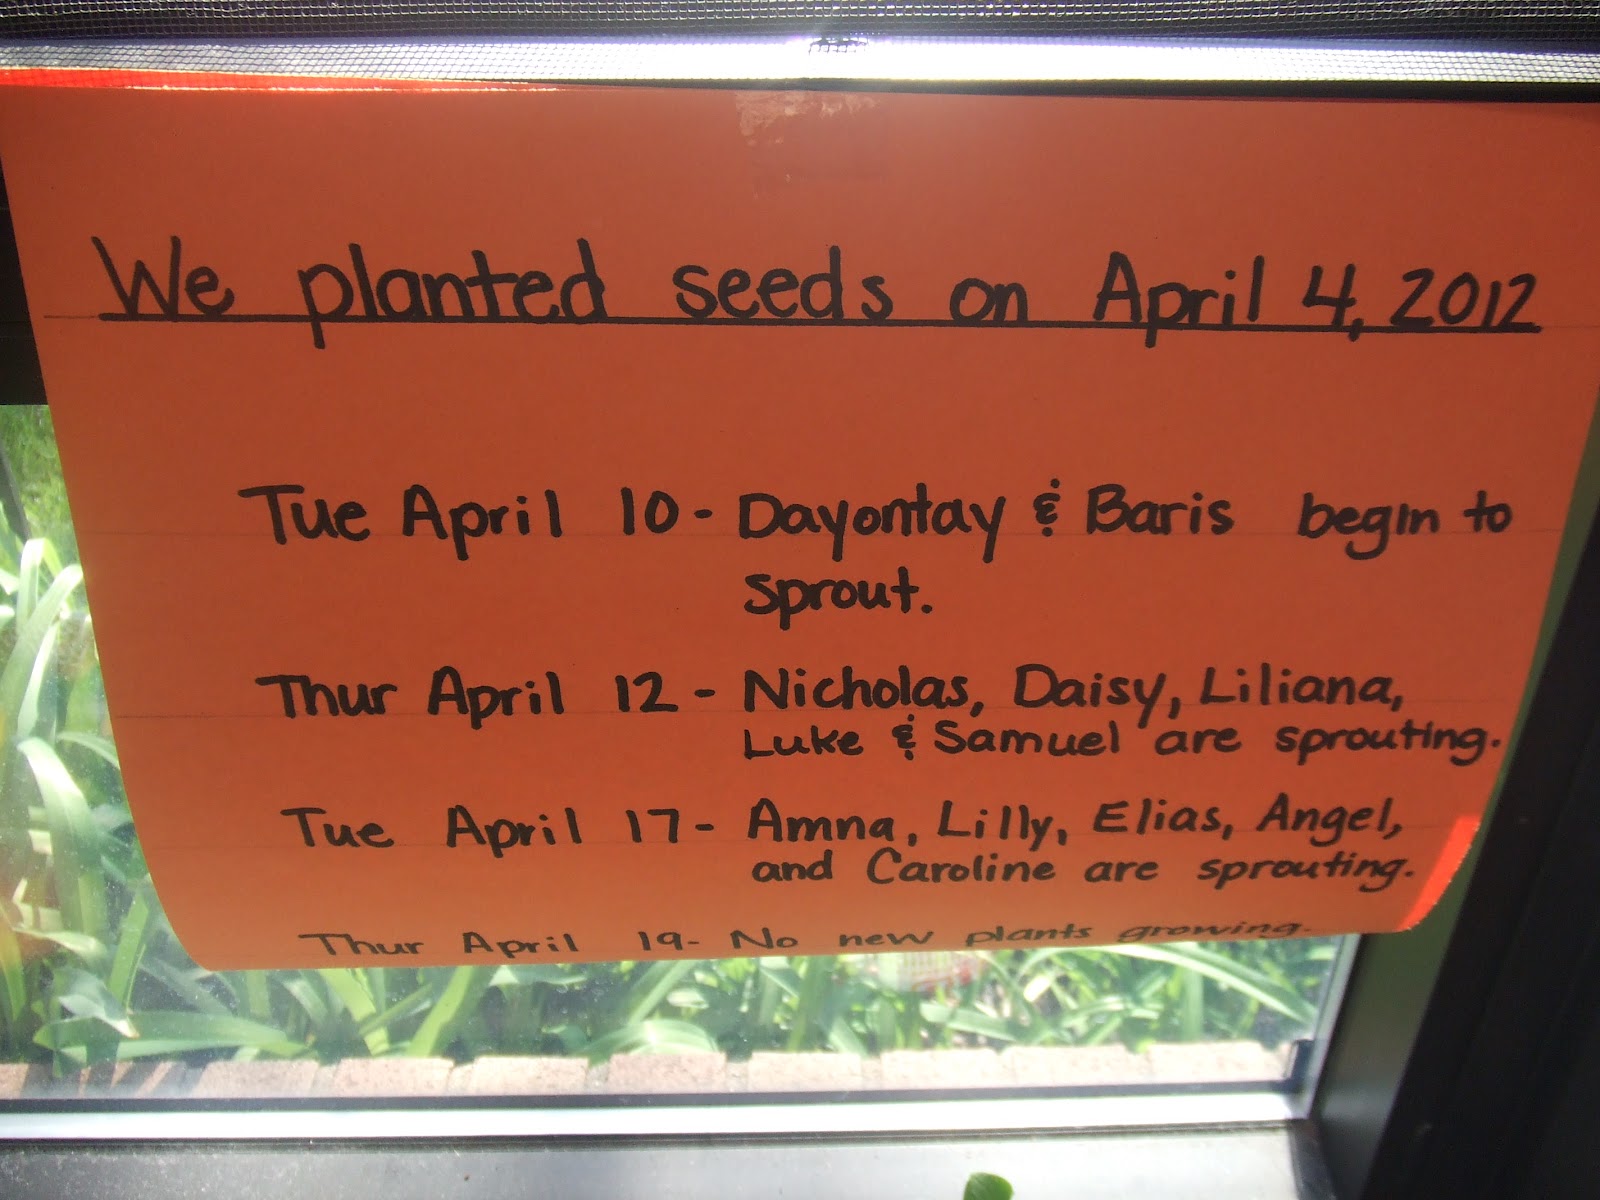 We planted seeds on April 4, 2012
Tue April 10 - Dayontay & Baris begin to
sprout.
Thur April 12 - Nicholas, Daisy, Liliana,
Luke & Samuel are sprouting.
Tue April 17 - Amna, Lilly, Elias, Angel,
and Caroline are sprouting.
Thur April 19 - No new plants growing.